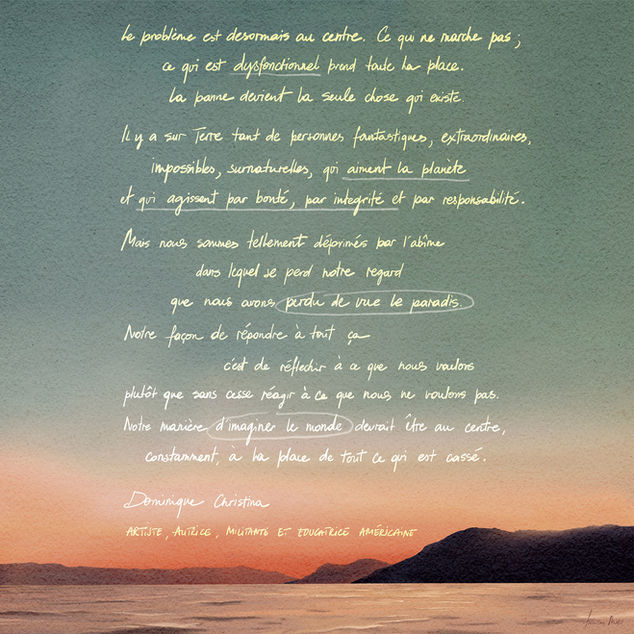 Le problème est désormais au centre. Ce qui ne marche pas ;
ce qui est dysfonctionnel prend toute la place.
La panne devient la seule chose qui existe.
Il y a sur Terre tant de personnes fantastiques, extraordinaires,
impossibles, surnaturelles, qui aiment la planète
et qui agissent par bonté, par integrité et par responsabilité.
Mais nous sommes tellement déprimés par l'abîme
dans lequel se perd notre regard
que nous avons perdu de vue le paradis.
Notre façon de répondre à tout ça
c'est de réflechir à ce que nous voulons
plutôt que sans cesse réagir à ce que nous ne voulons pas.
Notre manière d'imaginer le monde devrait être au centre,
constamment, à la place de tout ce qui est cassé.
Dominique Christina
ARTISTE, AUTRICE, MILITANTE ET EDUCATRICE AMÉRICAINE